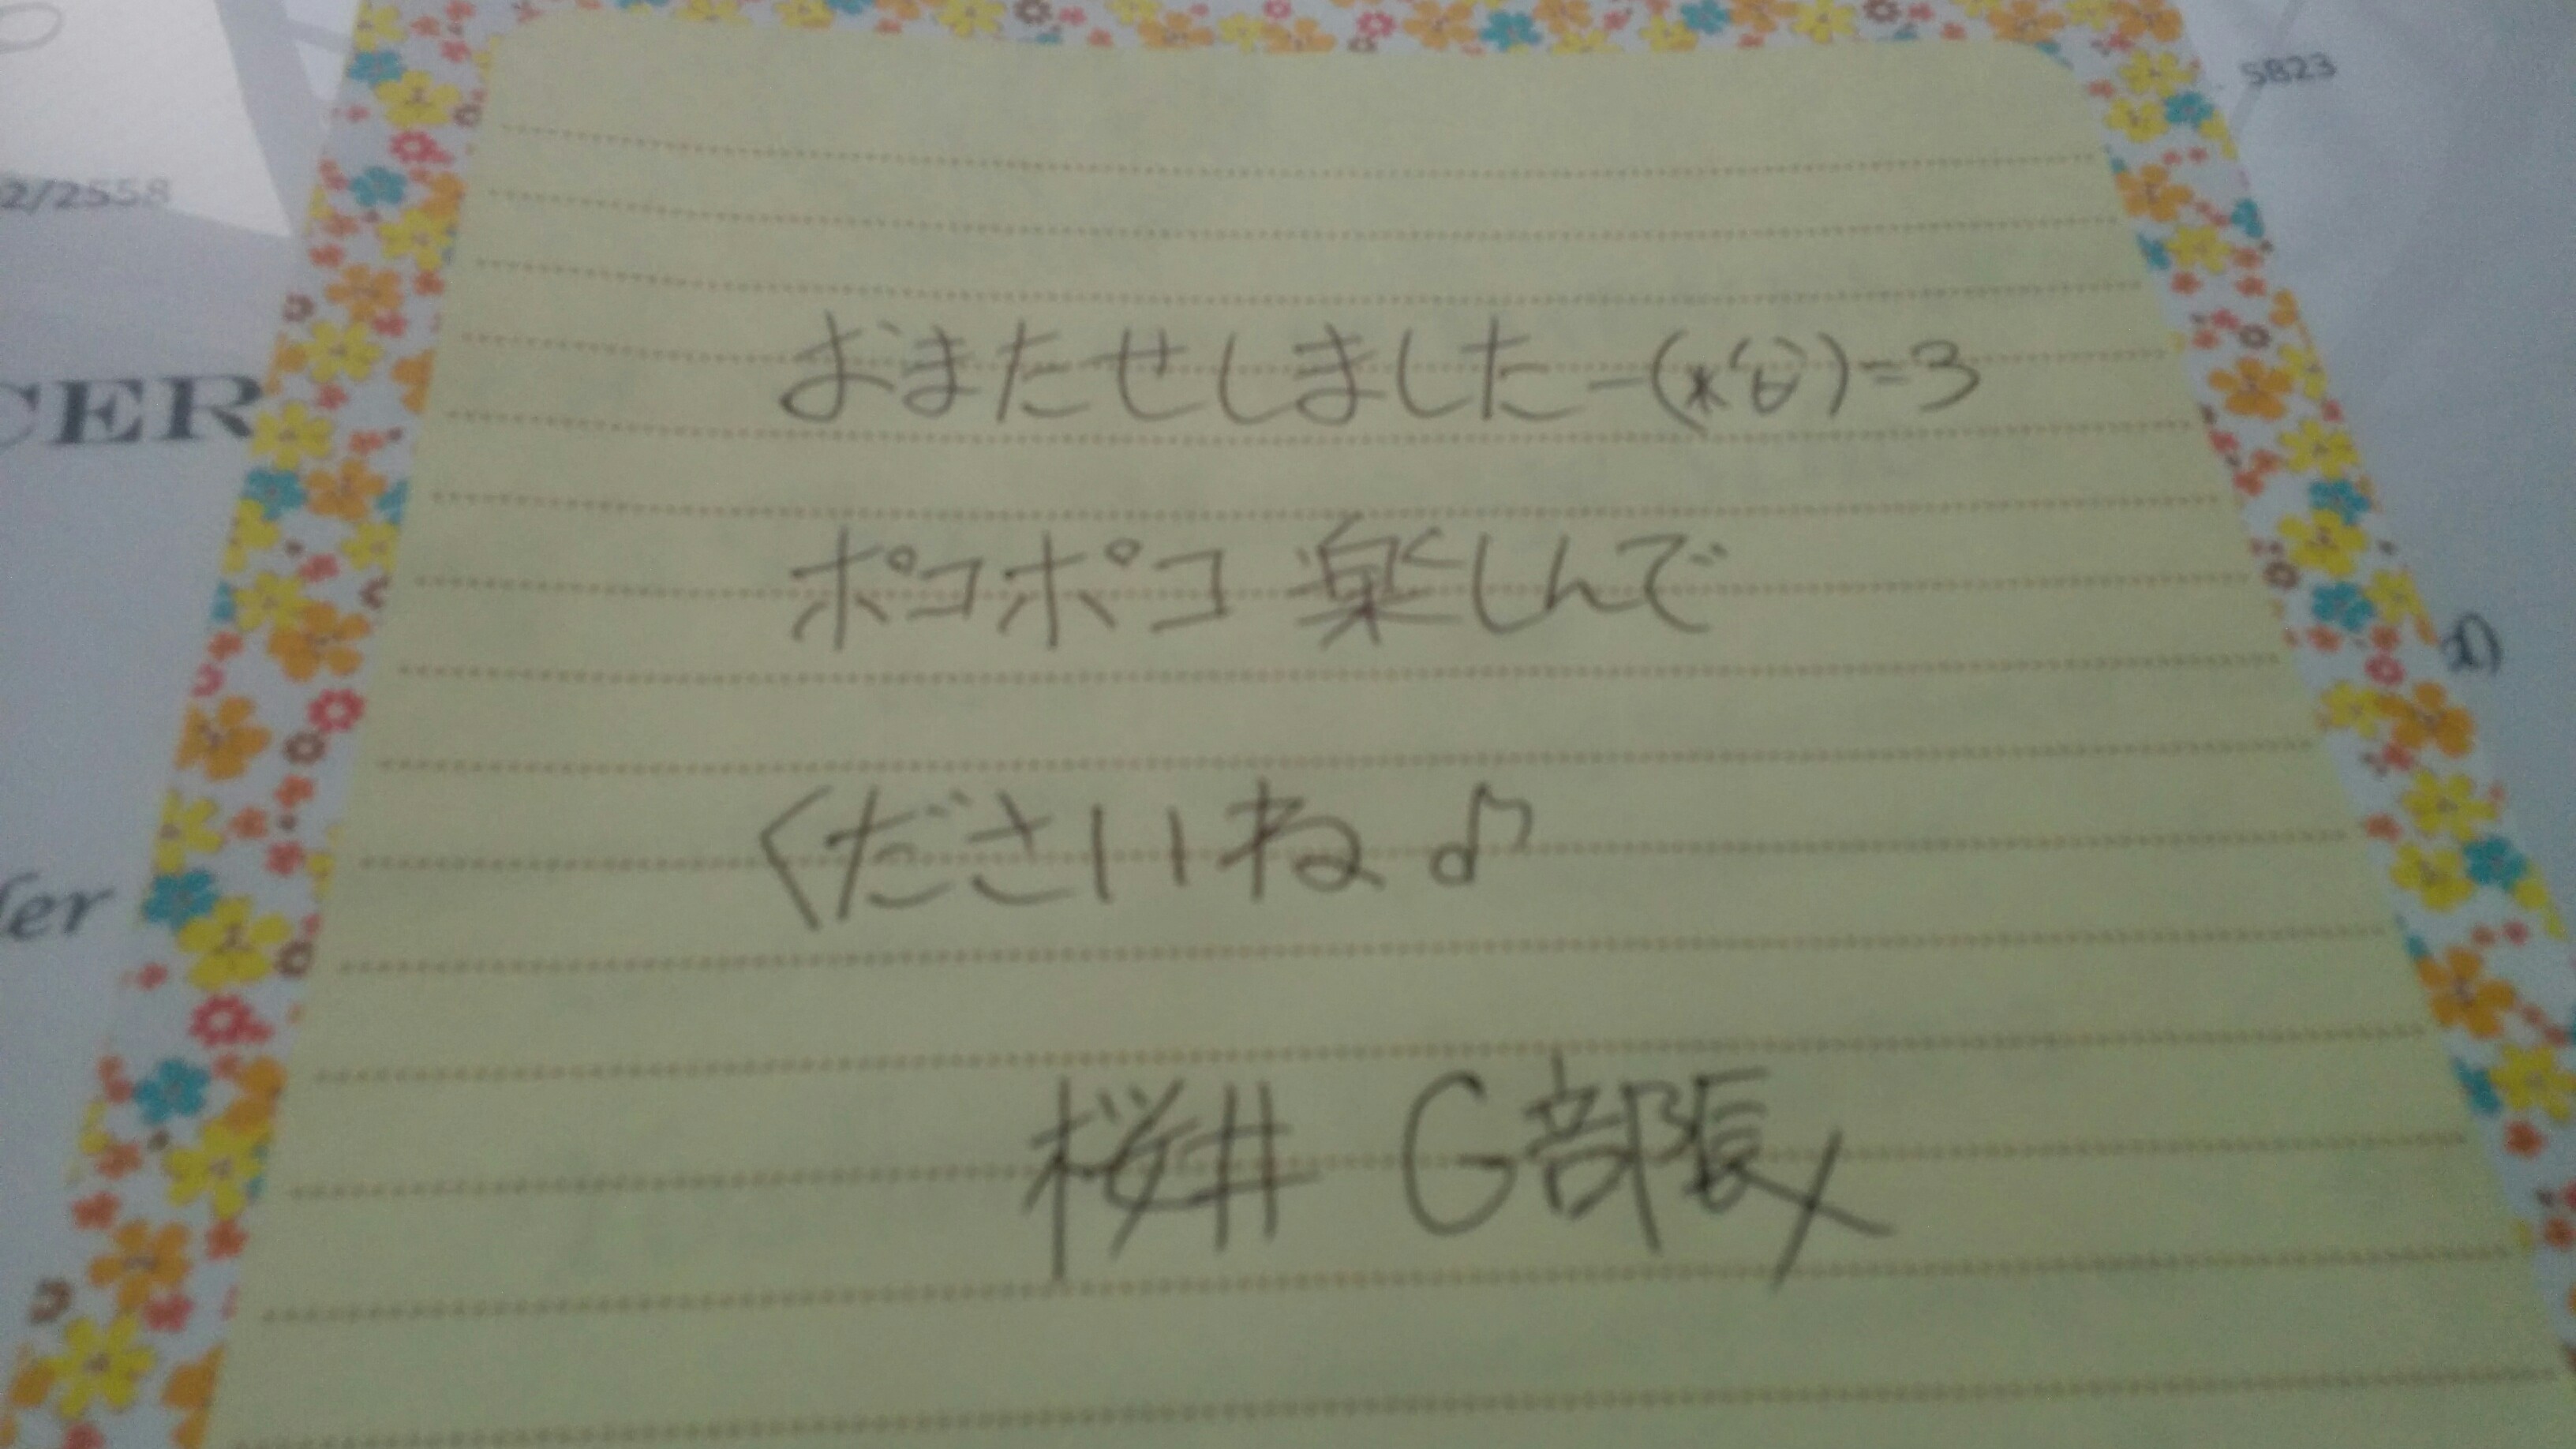 5823
2/2558
おまたせしましたー(*'ω')=3
CER
ポコポコ 楽しんで
くださいね♪
fer
桜井 G部長